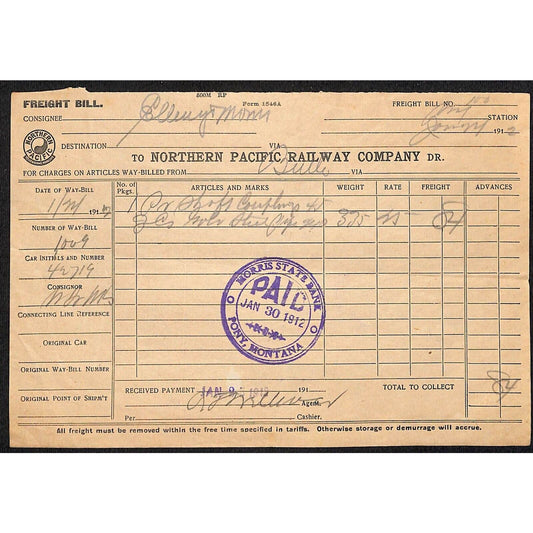 500M RP
FREIGHT BILL.
Form 1546A
FREIGHT BILL NO.
CONSIGNEE
Elling & Morris
STATION
191 2
NORTHERN PACIFIC
DESTINATION
VIA
TO NORTHERN PACIFIC RAILWAY COMPANY DR.
FOR CHARGES ON ARTICLES WAY-BILLED FROM
Butte
VIA
DATE OF WAY-BILL
No. of Pkgs.
ARTICLES AND MARKS
WEIGHT
RATE
FREIGHT
ADVANCES
191
1
Shaft Couplings
NUMBER OF WAY-BILL
1009
325
84
CAR INITIALS AND NUMBER
42719
CONSIGNOR
CONNECTING LINE REFERENCE
MORRIS STATE BANK
PAID
JAN 30 1912
PONY, MONTANA
ORIGINAL CAR
ORIGINAL WAY-BILL NUMBER
ORIGINAL POINT OF SHIPM'T
RECEIVED PAYMENT
191
TOTAL TO COLLECT
84
Agent.
Per
Cashier.
All freight must be removed within the free time specified in tariffs. Otherwise storage or demurrage will accrue.